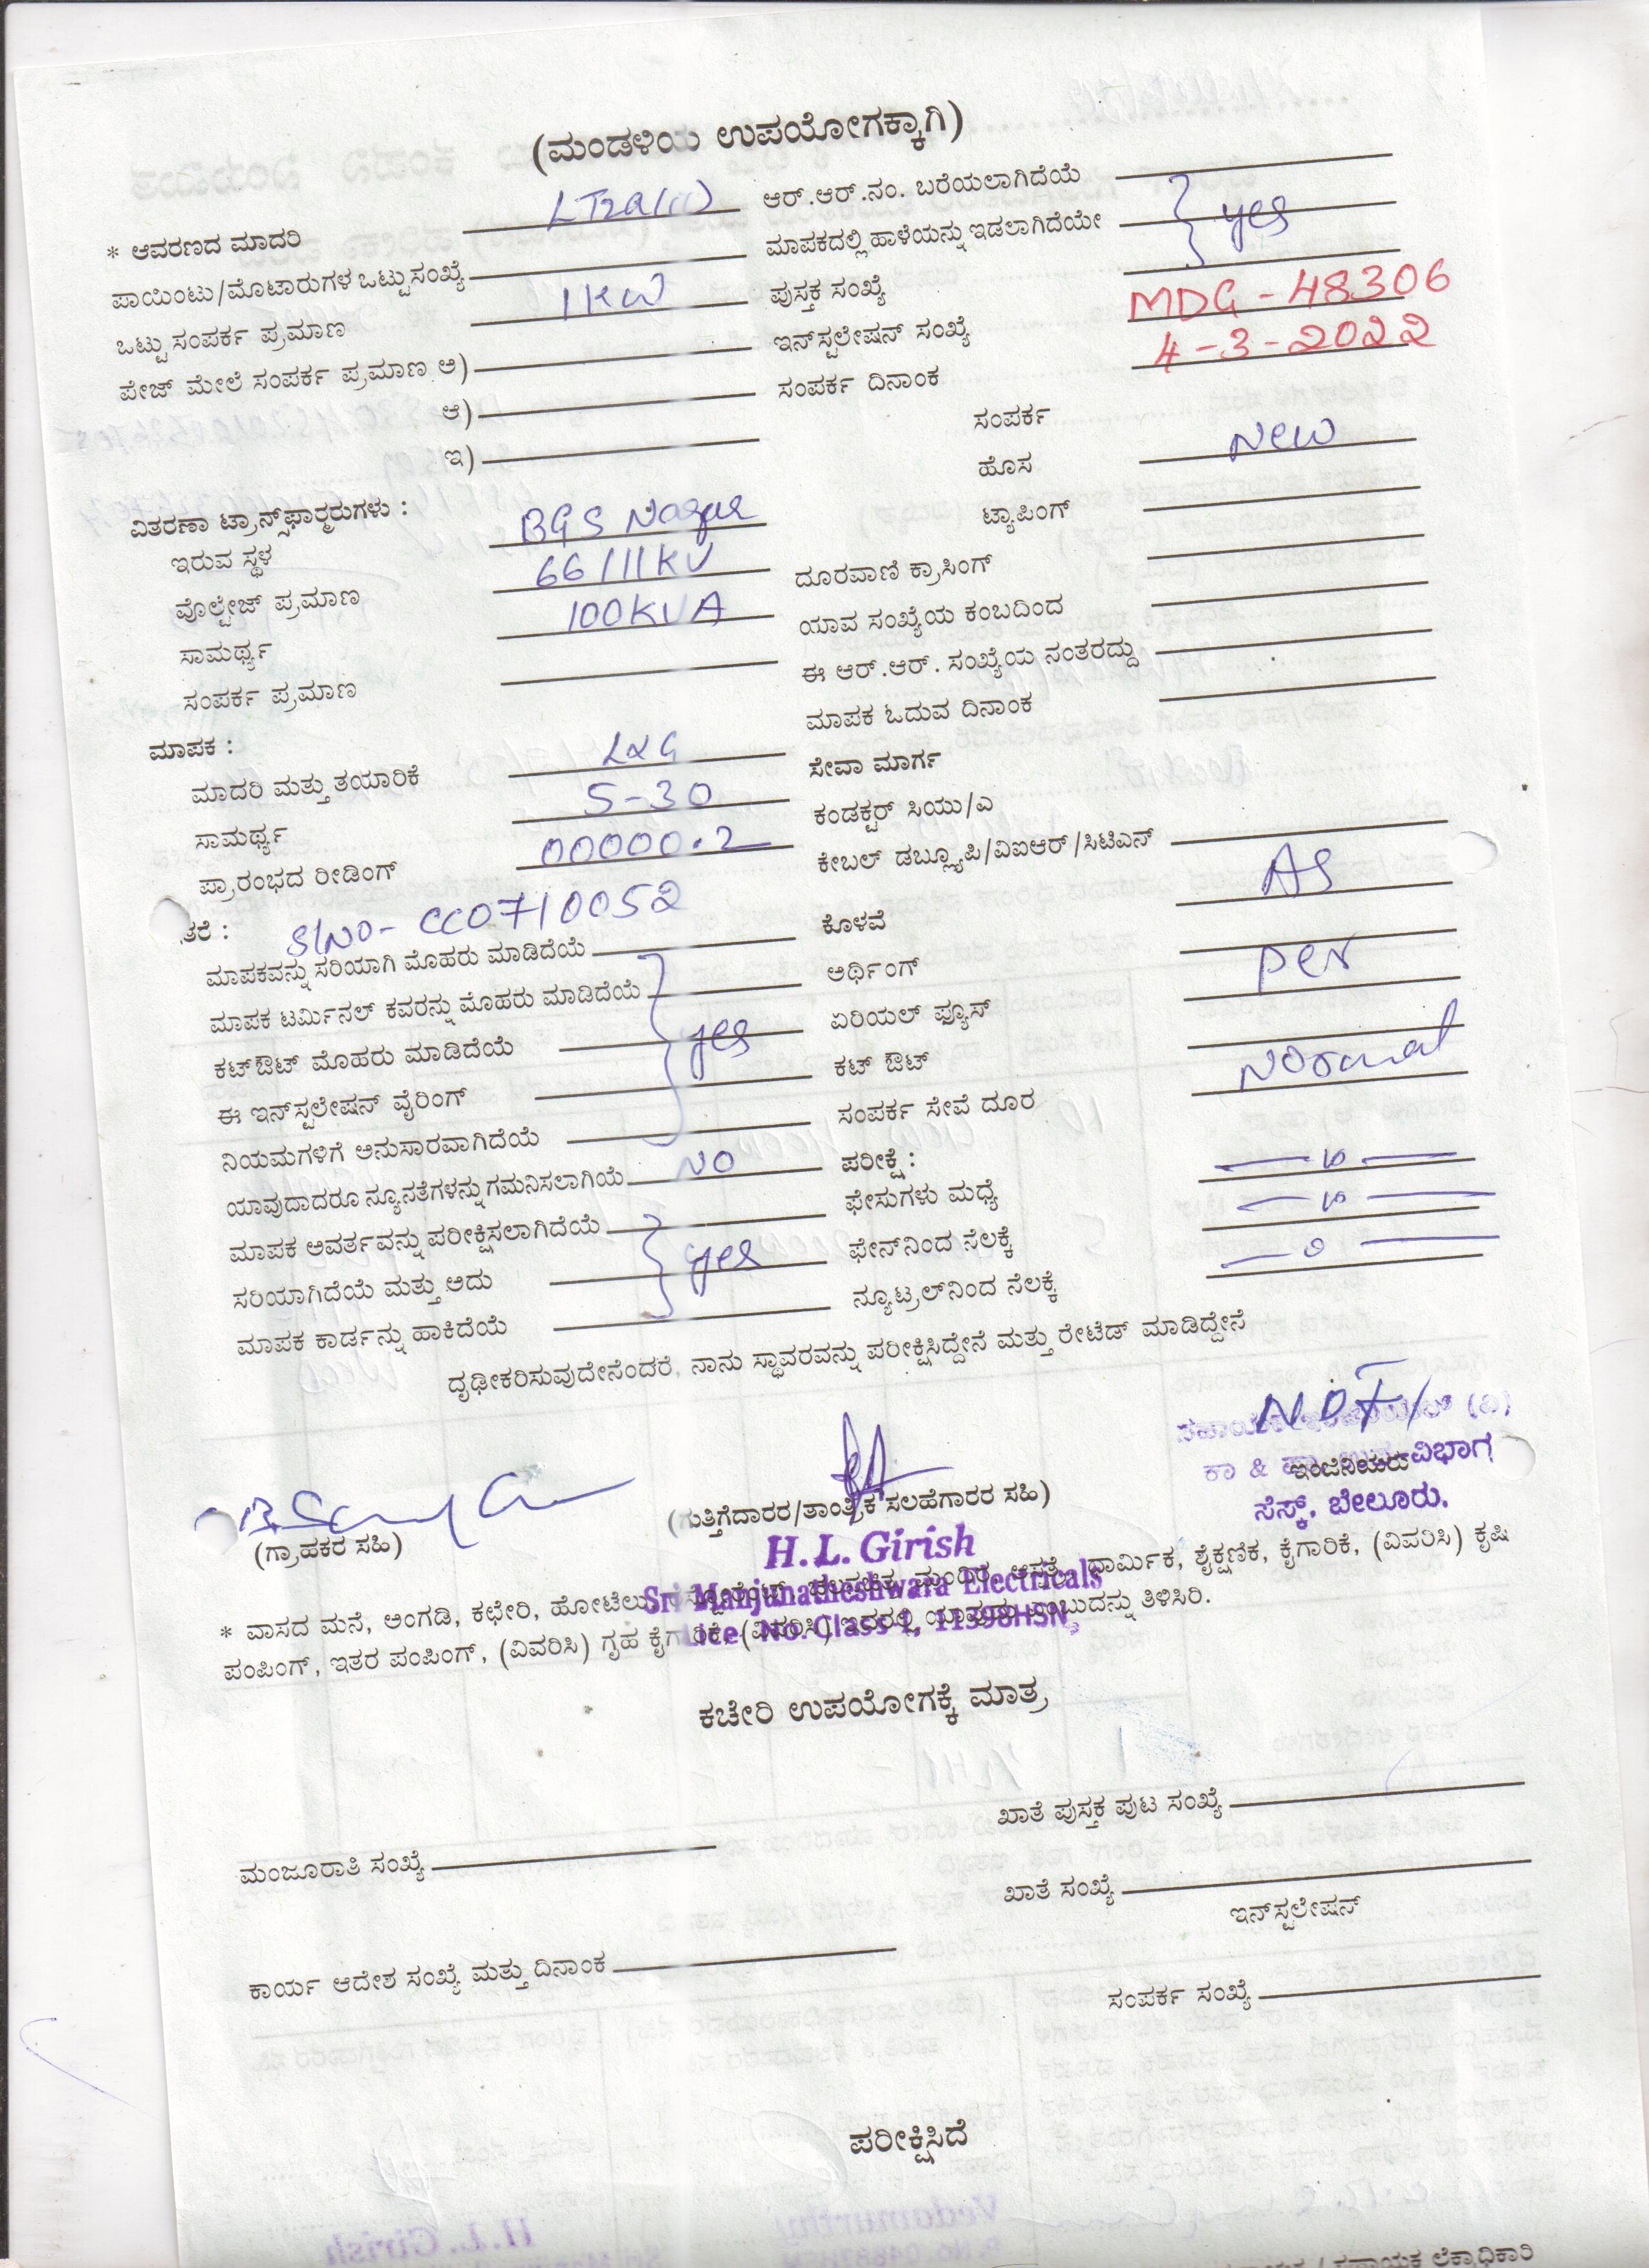 (ಮಂಡಳಿಯ ಉಪಯೋಗಕ್ಕಾಗಿ)
* ಆವರಣದ ಮಾದರಿ LT2a(ii)
ಪಾಯಿಂಟು/ಮೊಟಾರುಗಳ ಒಟ್ಟು ಸಂಖ್ಯೆ
ಒಟ್ಟು ಸಂಪರ್ಕ ಪ್ರಮಾಣ 1KW
ಪೇಜ್ ಮೇಲೆ ಸಂಪರ್ಕ ಪ್ರಮಾಣ ಅ)
ಆ)
ಇ)
ವಿತರಣಾ ಟ್ರಾನ್ಸ್‌ಫಾರ್‍ಮರುಗಳು :
ಇರುವ ಸ್ಥಳ BGS Nagar
ವೊಲ್ಟೇಜ್ ಪ್ರಮಾಣ 66/11KV
ಸಾಮರ್ಥ್ಯ 100KVA
ಸಂಪರ್ಕ ಪ್ರಮಾಣ
ಮಾಪಕ :
ಮಾದರಿ ಮತ್ತು ತಯಾರಿಕೆ L&G
ಸಾಮರ್ಥ್ಯ 5-30
ಪ್ರಾರಂಭದ ರೀಡಿಂಗ್ 00000.2
ತರೆ : Sl No- CC0710052
ಮಾಪಕವನ್ನು ಸರಿಯಾಗಿ ಮೊಹರು ಮಾಡಿದೆಯೆ
ಮಾಪಕ ಟರ್ಮಿನಲ್ ಕವರನ್ನು ಮೊಹರು ಮಾಡಿದೆಯೆ
ಕಟ್‌ಔಟ್ ಮೊಹರು ಮಾಡಿದೆಯೆ yes
ಈ ಇನ್‌ಸ್ಟಲೇಷನ್ ವೈರಿಂಗ್
ನಿಯಮಗಳಿಗೆ ಅನುಸಾರವಾಗಿದೆಯೆ
ಯಾವುದಾದರೂ ನ್ಯೂನತೆಗಳನ್ನು ಗಮನಿಸಲಾಗಿಯೆ NO
ಮಾಪಕ ಅವರ್ತವನ್ನು ಪರೀಕ್ಷಿಸಲಾಗಿದೆಯೆ
ಸರಿಯಾಗಿದೆಯೆ ಮತ್ತು ಅದು yes
ಮಾಪಕ ಕಾರ್ಡನ್ನು ಹಾಕಿದೆಯೆ
ಆರ್.ಆರ್.ನಂ. ಬರೆಯಲಾಗಿದೆಯೆ
ಮಾಪಕದಲ್ಲಿ ಹಾಳೆಯನ್ನು ಇಡಲಾಗಿದೆಯೇ yes
ಪುಸ್ತಕ ಸಂಖ್ಯೆ
ಇನ್‌ಸ್ಟಲೇಷನ್ ಸಂಖ್ಯೆ MDG - 48306
ಸಂಪರ್ಕ ದಿನಾಂಕ 4-3-2022
ಸಂಪರ್ಕ
ಹೊಸ New
ಟ್ಯಾಪಿಂಗ್
ದೂರವಾಣಿ ಕ್ರಾಸಿಂಗ್
ಯಾವ ಸಂಖ್ಯೆಯ ಕಂಬದಿಂದ
ಈ ಆರ್.ಆರ್. ಸಂಖ್ಯೆಯ ನಂತರದ್ದು
ಮಾಪಕ ಓದುವ ದಿನಾಂಕ
ಸೇವಾ ಮಾರ್ಗ
ಕಂಡಕ್ಟರ್ ಸಿಯು/ಎ
ಕೇಬಲ್ ಡಬ್ಲ್ಯೂಪಿ/ವಿಐಆರ್/ಸಿಟಿಎನ್ AS
ಕೊಳವೆ
ಅರ್ಥಿಂಗ್ per
ಏರಿಯಲ್ ಫ್ಯೂಸ್
ಕಟ್ ಔಟ್ Normal
ಸಂಪರ್ಕ ಸೇವೆ ದೂರ
ಪರೀಕ್ಷೆ :
ಫೇಸುಗಳು ಮಧ್ಯೆ
ಫೇನ್‌ನಿಂದ ನೆಲಕ್ಕೆ
ನ್ಯೂಟ್ರಲ್‌ನಿಂದ ನೆಲಕ್ಕೆ
ದೃಢೀಕರಿಸುವುದೇನೆಂದರೆ, ನಾನು ಸ್ಥಾವರವನ್ನು ಪರೀಕ್ಷಿಸಿದ್ದೇನೆ ಮತ್ತು ರೇಟೆಡ್ ಮಾಡಿದ್ದೇನೆ
(ಗ್ರಾಹಕರ ಸಹಿ)
(ಗುತ್ತಿಗೆದಾರರ/ತಾಂತ್ರಿಕ ಸಲಹೆಗಾರರ ಸಹಿ)
ಇಂಜಿನಿಯರು
ಕಾ & ಪಾ ಉಪ-ವಿಭಾಗ
ಸೆಸ್ಕ್, ಬೇಲೂರು.
H.L. Girish
Sri Manjunatheshwara Electricals
Lice No. Class-1, 11398HSN
* ವಾಸದ ಮನೆ, ಅಂಗಡಿ, ಕಛೇರಿ, ಹೋಟೆಲು, ಮಂದಿರ, ಆಸ್ಪತ್ರೆ, ಧಾರ್ಮಿಕ, ಶೈಕ್ಷಣಿಕ, ಕೈಗಾರಿಕೆ, (ವಿವರಿಸಿ) ಕೃಷಿ
ಪಂಪಿಂಗ್, ಇತರ ಪಂಪಿಂಗ್, (ವಿವರಿಸಿ) ಗೃಹ ಕೈಗಾರಿಕೆ, (ವಿವರಿಸಿ) ಇದರಲ್ಲಿ ಯಾವುದು ಎಂಬುದನ್ನು ತಿಳಿಸಿರಿ.
ಕಚೇರಿ ಉಪಯೋಗಕ್ಕೆ ಮಾತ್ರ
ಖಾತೆ ಪುಸ್ತಕ ಪುಟ ಸಂಖ್ಯೆ
ಮಂಜೂರಾತಿ ಸಂಖ್ಯೆ
ಖಾತೆ ಸಂಖ್ಯೆ
ಇನ್‌ಸ್ಟಲೇಷನ್
ಕಾರ್ಯ ಆದೇಶ ಸಂಖ್ಯೆ ಮತ್ತು ದಿನಾಂಕ
ಸಂಪರ್ಕ ಸಂಖ್ಯೆ
ಪರೀಕ್ಷಿಸಿದೆ
/ ಸಹಾಯಕ ಲೆಕ್ಕಾಧಿಕಾರಿ